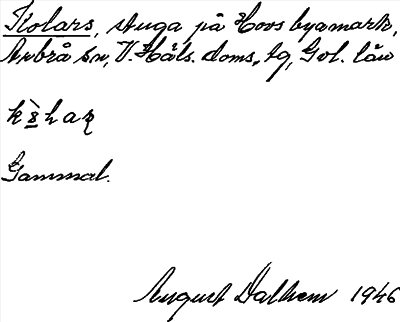 Kolars, stuga på Hovs byamark,
Arbrå sn, V. Häls. doms. tg, Gvl. län
Gammal.
August Dalhem 1946